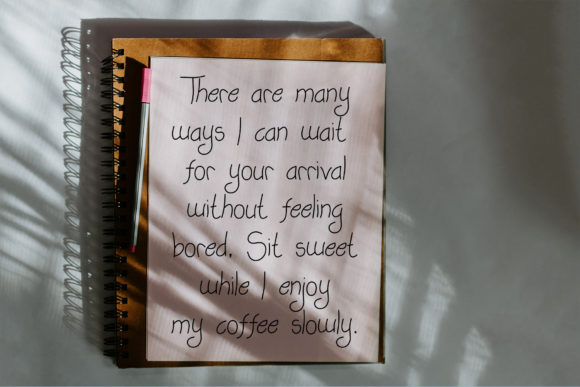 There are many
ways I can wait
for your arrival
without feeling
bored. Sit sweet
while I enjoy
my coffee slowly.